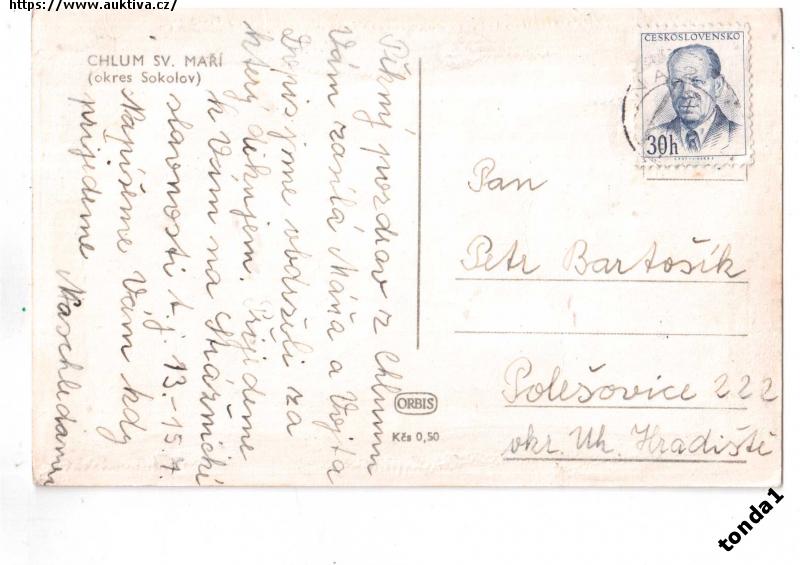 https://www.auktiva.cz/
CHLUM SV. MAŘÍ
(okres Sokolov)
Pěkný pozdrav z Chlumu
Vám zasílá Máňa a Vojta
Dopis jsme obdrželi za
který děkujem. Přijedeme
k Vám na Strážnické
slavnosti t.j. 13.-15.7.
Napíšeme Vám kdy
prijedeme Naschledanou
ČESKOSLOVENSKO
30h
Pan
Petr Bartošík
Polešovice 222
okr. Uh. Hradiště
ORBIS
Kčs 0,50
tonda1